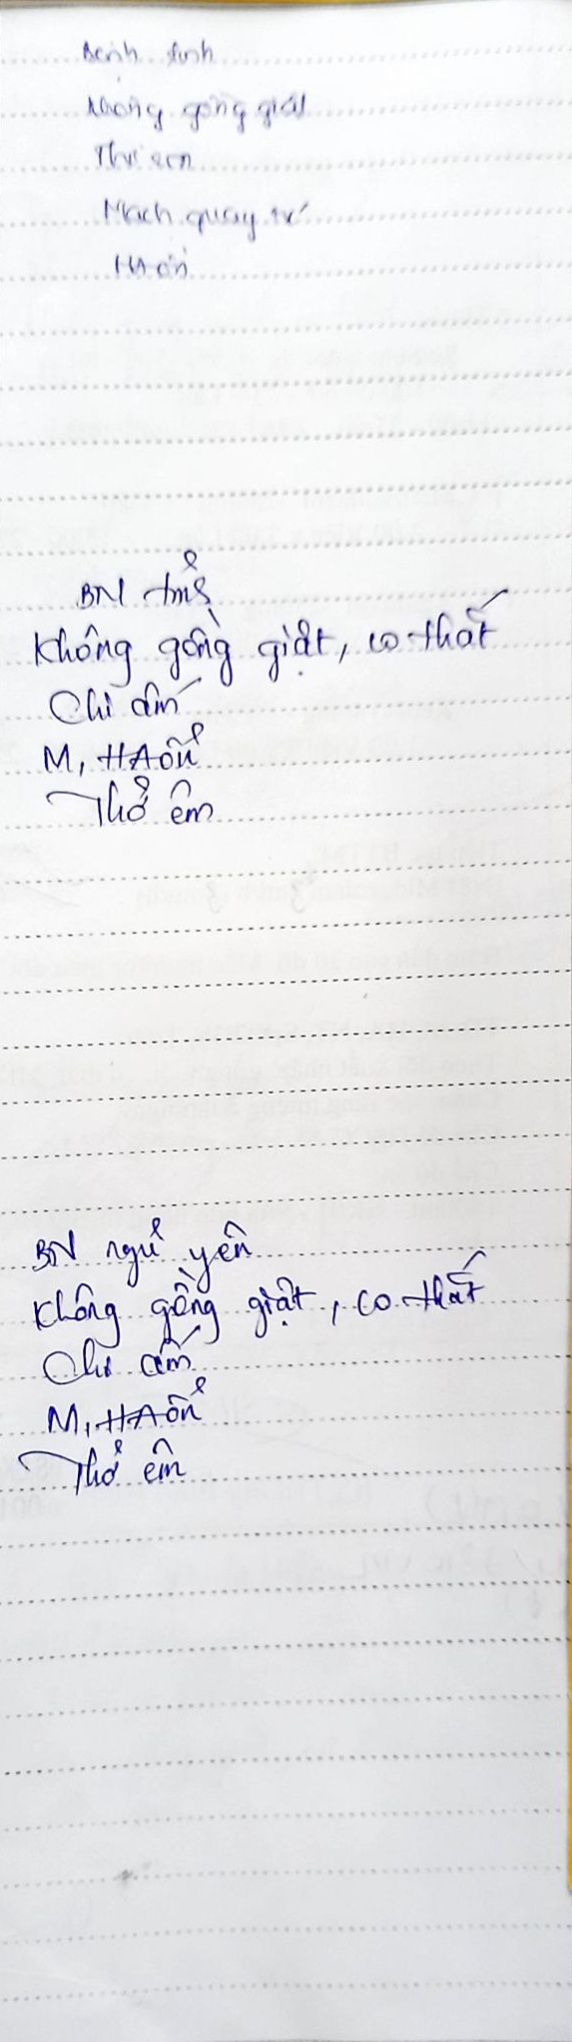 Bệnh tỉnh
Không gồng giật
Thở êm
Mạch quay rõ
HA ổn
BN tỉnh
Không gồng giật, co thắt
Chi ấm
M, HA ổn
Thở êm
BN ngủ yên
Không gồng giật, co thắt
Chi ấm
M, HA ổn
Thở êm